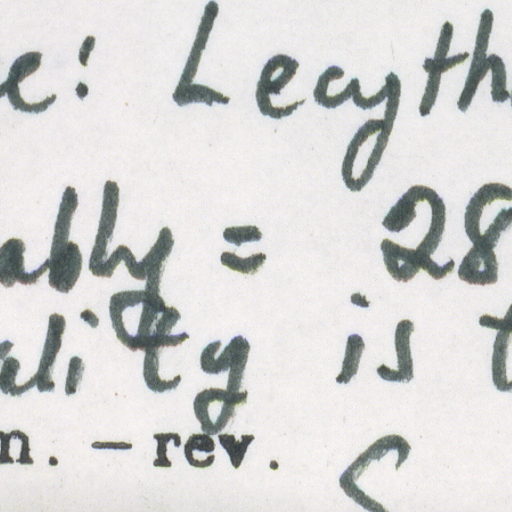 e: Lecyth
ably = 28
ality is t
n. — rev.